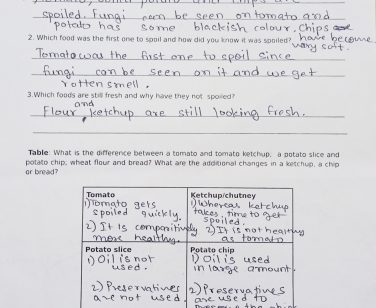 spoiled. Fungi can be seen on tomato and
potato has some blackish colour, chips
2. Which food was the first one to spoil and how did you know it was spoiled? have become
very soft.
Tomato was the first one to spoil since
fungi can be seen on it and we get
rotten smell.
3.Which foods are still fresh and why have they not spoiled?
and
Flour, ketchup are still looking fresh.
Table: What is the difference between a tomato and tomato ketchup; a potato slice and
potato chip; wheat flour and bread? What are the additional changes in a ketchup, a chip
or bread?
Tomato
1) Tomato gets
spoiled quickly.
2) It is comparitively
more healthy.
Ketchup/chutney
1) Whereas ketchup
takes time to get
spoiled.
2) It is not healthy
as tomato
Potato slice
1) Oil is not
used.
2) Preservatives
are not used.
Potato chip
1) Oil is used
in large amount.
2) Preservatives
are used to